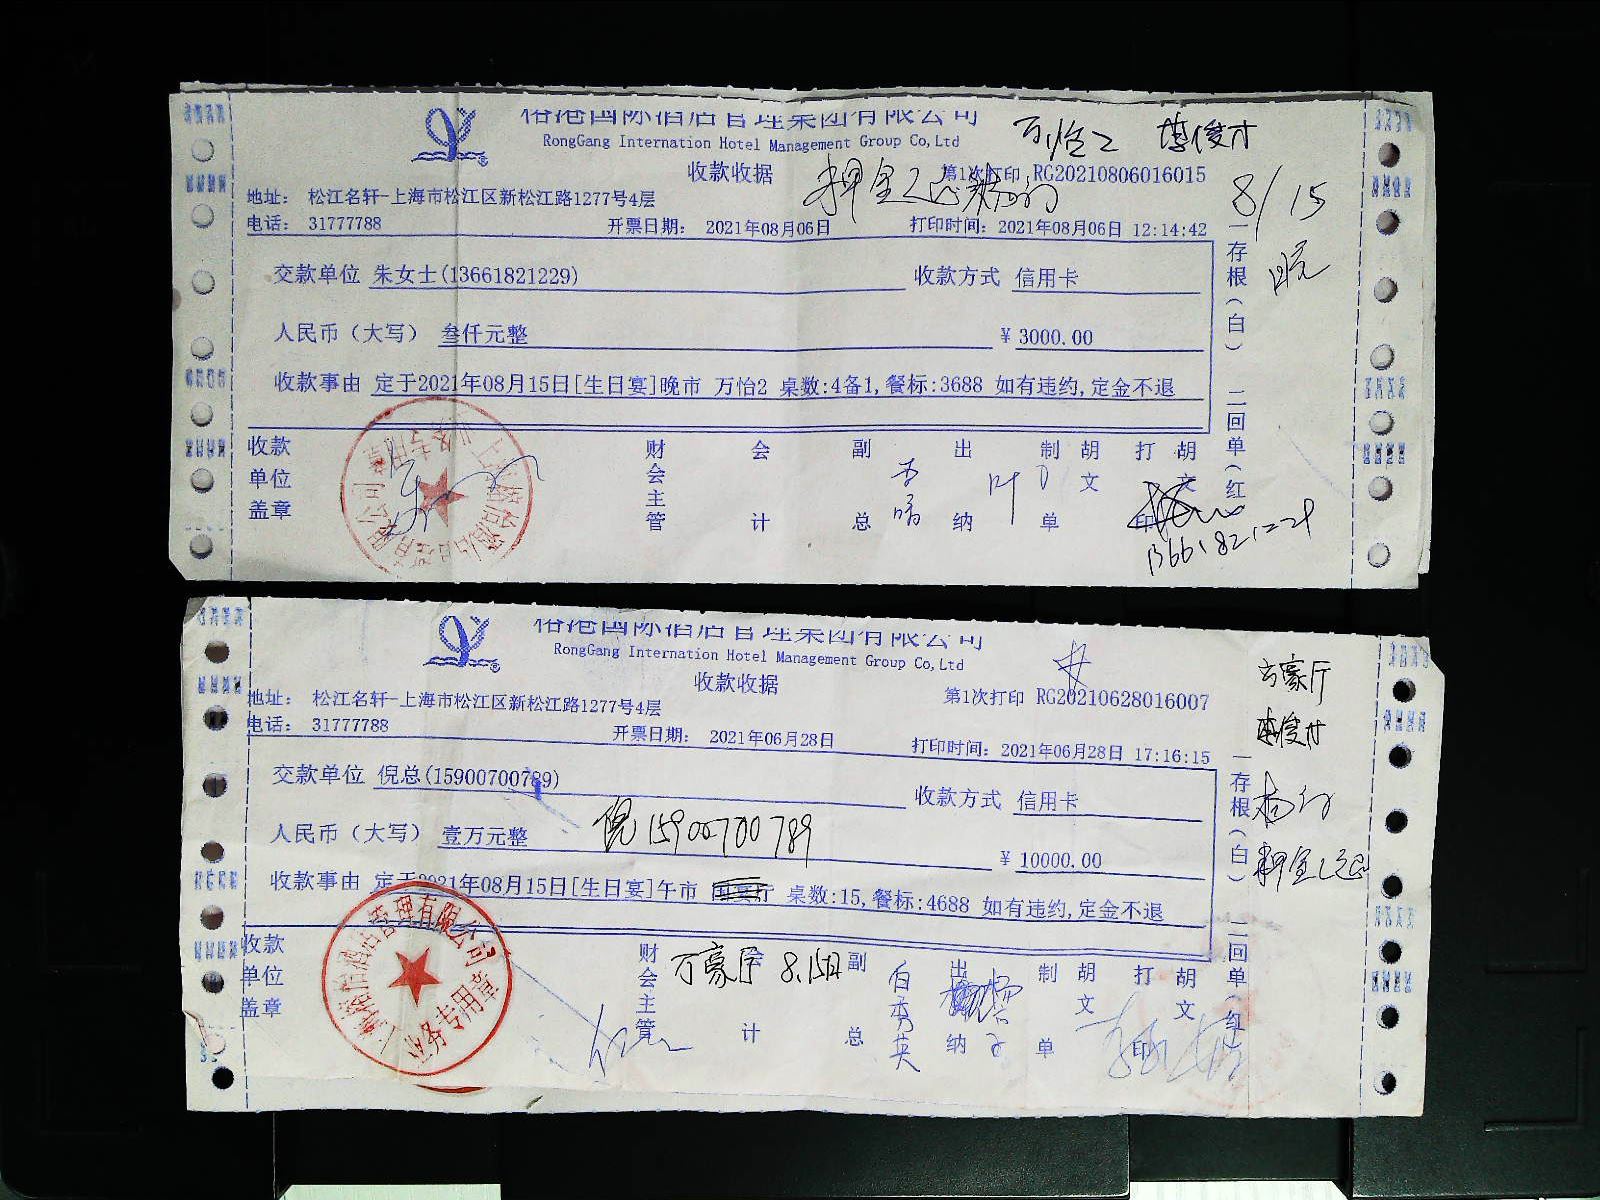 榕港国际酒店管理集团有限公司
RongGang Internation Hotel Management Group Co,Ltd
万怡2
收款收据
第1次打印 RG20210806016015
押金已退
8/15
地址: 松江名轩-上海市松江区新松江路1277号4层
电话: 31777788
开票日期: 2021年08月06日
打印时间: 2021年08月06日 12:14:42
交款单位 朱女士(13661821229)
收款方式 信用卡
人民币(大写) 叁仟元整
¥ 3000.00
收款事由 定于2021年08月15日[生日宴]晚市 万怡2 桌数:4备1,餐标:3688 如有违约,定金不退
一存根(白) 二回单(红
收款单位盖章
财会主管
会计
副总
出纳
制单
胡文
打印
胡文
业务专用章
13661821229
榕港国际酒店管理集团有限公司
RongGang Internation Hotel Management Group Co,Ltd
收款收据
第1次打印 RG20210628016007
万豪厅
地址: 松江名轩-上海市松江区新松江路1277号4层
电话: 31777788
开票日期: 2021年06月28日
打印时间: 2021年06月28日 17:16:15
交款单位 倪总(15900700789)
收款方式 信用卡
人民币(大写) 壹万元整
倪15900700789
¥ 10000.00
押金已退
收款事由 定于2021年08月15日[生日宴]午市 国宴厅 桌数:15,餐标:4688 如有违约,定金不退
一存根(白) 二回单(红
收款单位盖章
财会主管
万豪厅 8.15日
会计
副总
白秀英
出纳
制单
胡文
打印
胡文
酒店管理有限公司
业务专用章